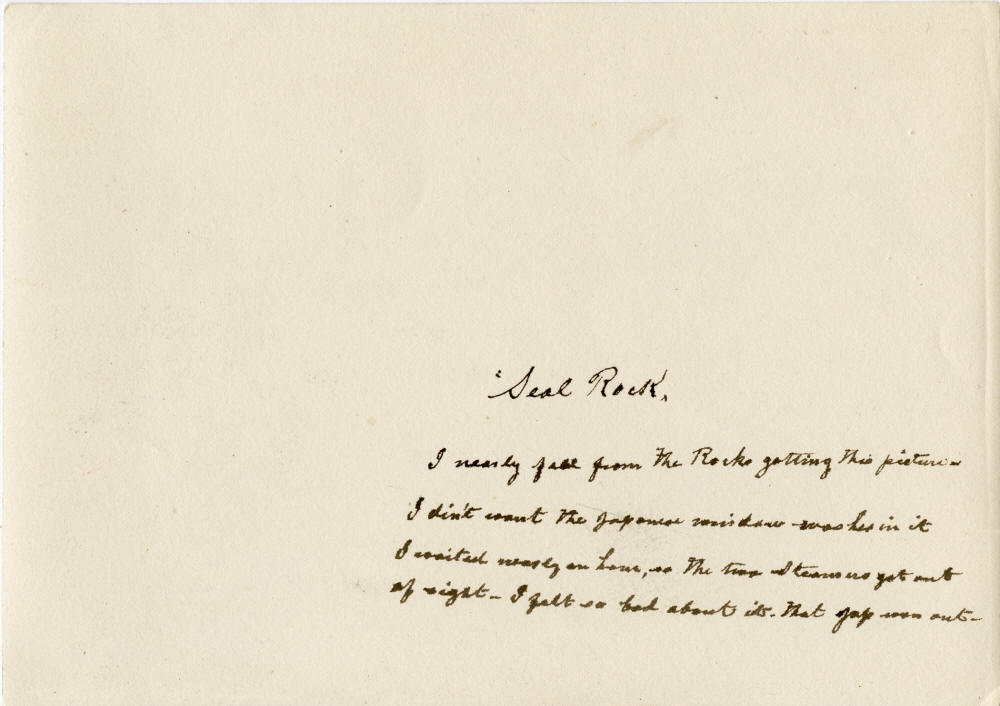 "Seal Rock",
I nearly fall from the Rocks getting this picture
I din't want the Japanese window washes in it
I waited nearly an hour, so the two steamers got out
of sight - I felt so bad about it. that jap won out -